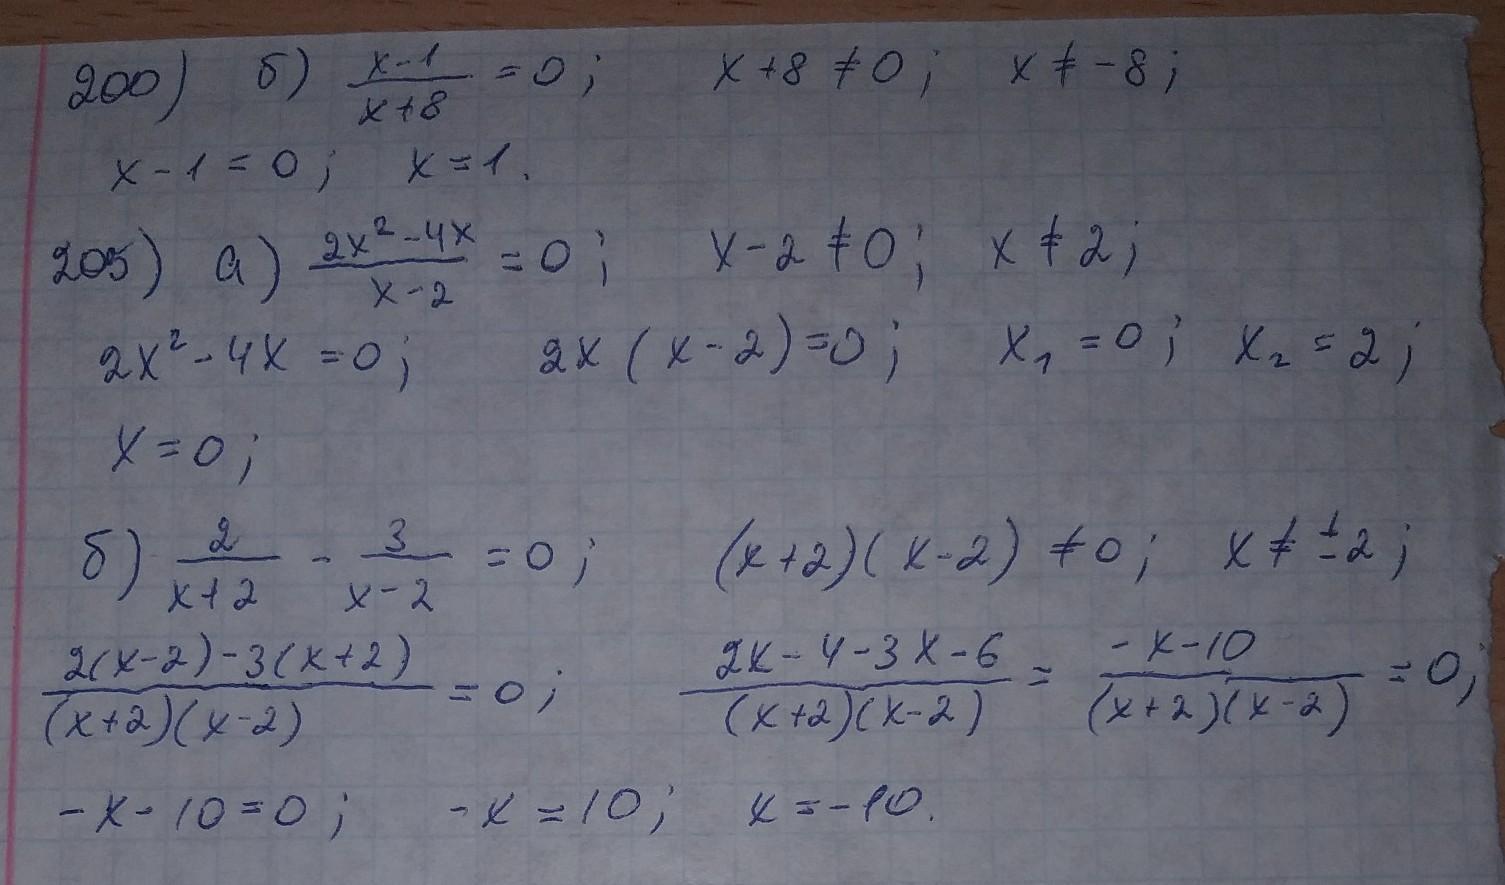 200) б) (x-1)/(x+8) = 0; x+8 ≠ 0; x ≠ -8;
x-1=0; x=1.
205) а) (2x²-4x)/(x-2) = 0; x-2 ≠ 0; x ≠ 2;
2x²-4x=0; 2x(x-2)=0; x₁=0; x₂=2;
x=0;
б) 2/(x+2) - 3/(x-2) = 0; (x+2)(x-2) ≠ 0; x ≠ ±2;
(2(x-2)-3(x+2))/((x+2)(x-2)) = 0; (2x-4-3x-6)/((x+2)(x-2)) = (-x-10)/((x+2)(x-2)) = 0;
-x-10=0; -x=10; x=-10.